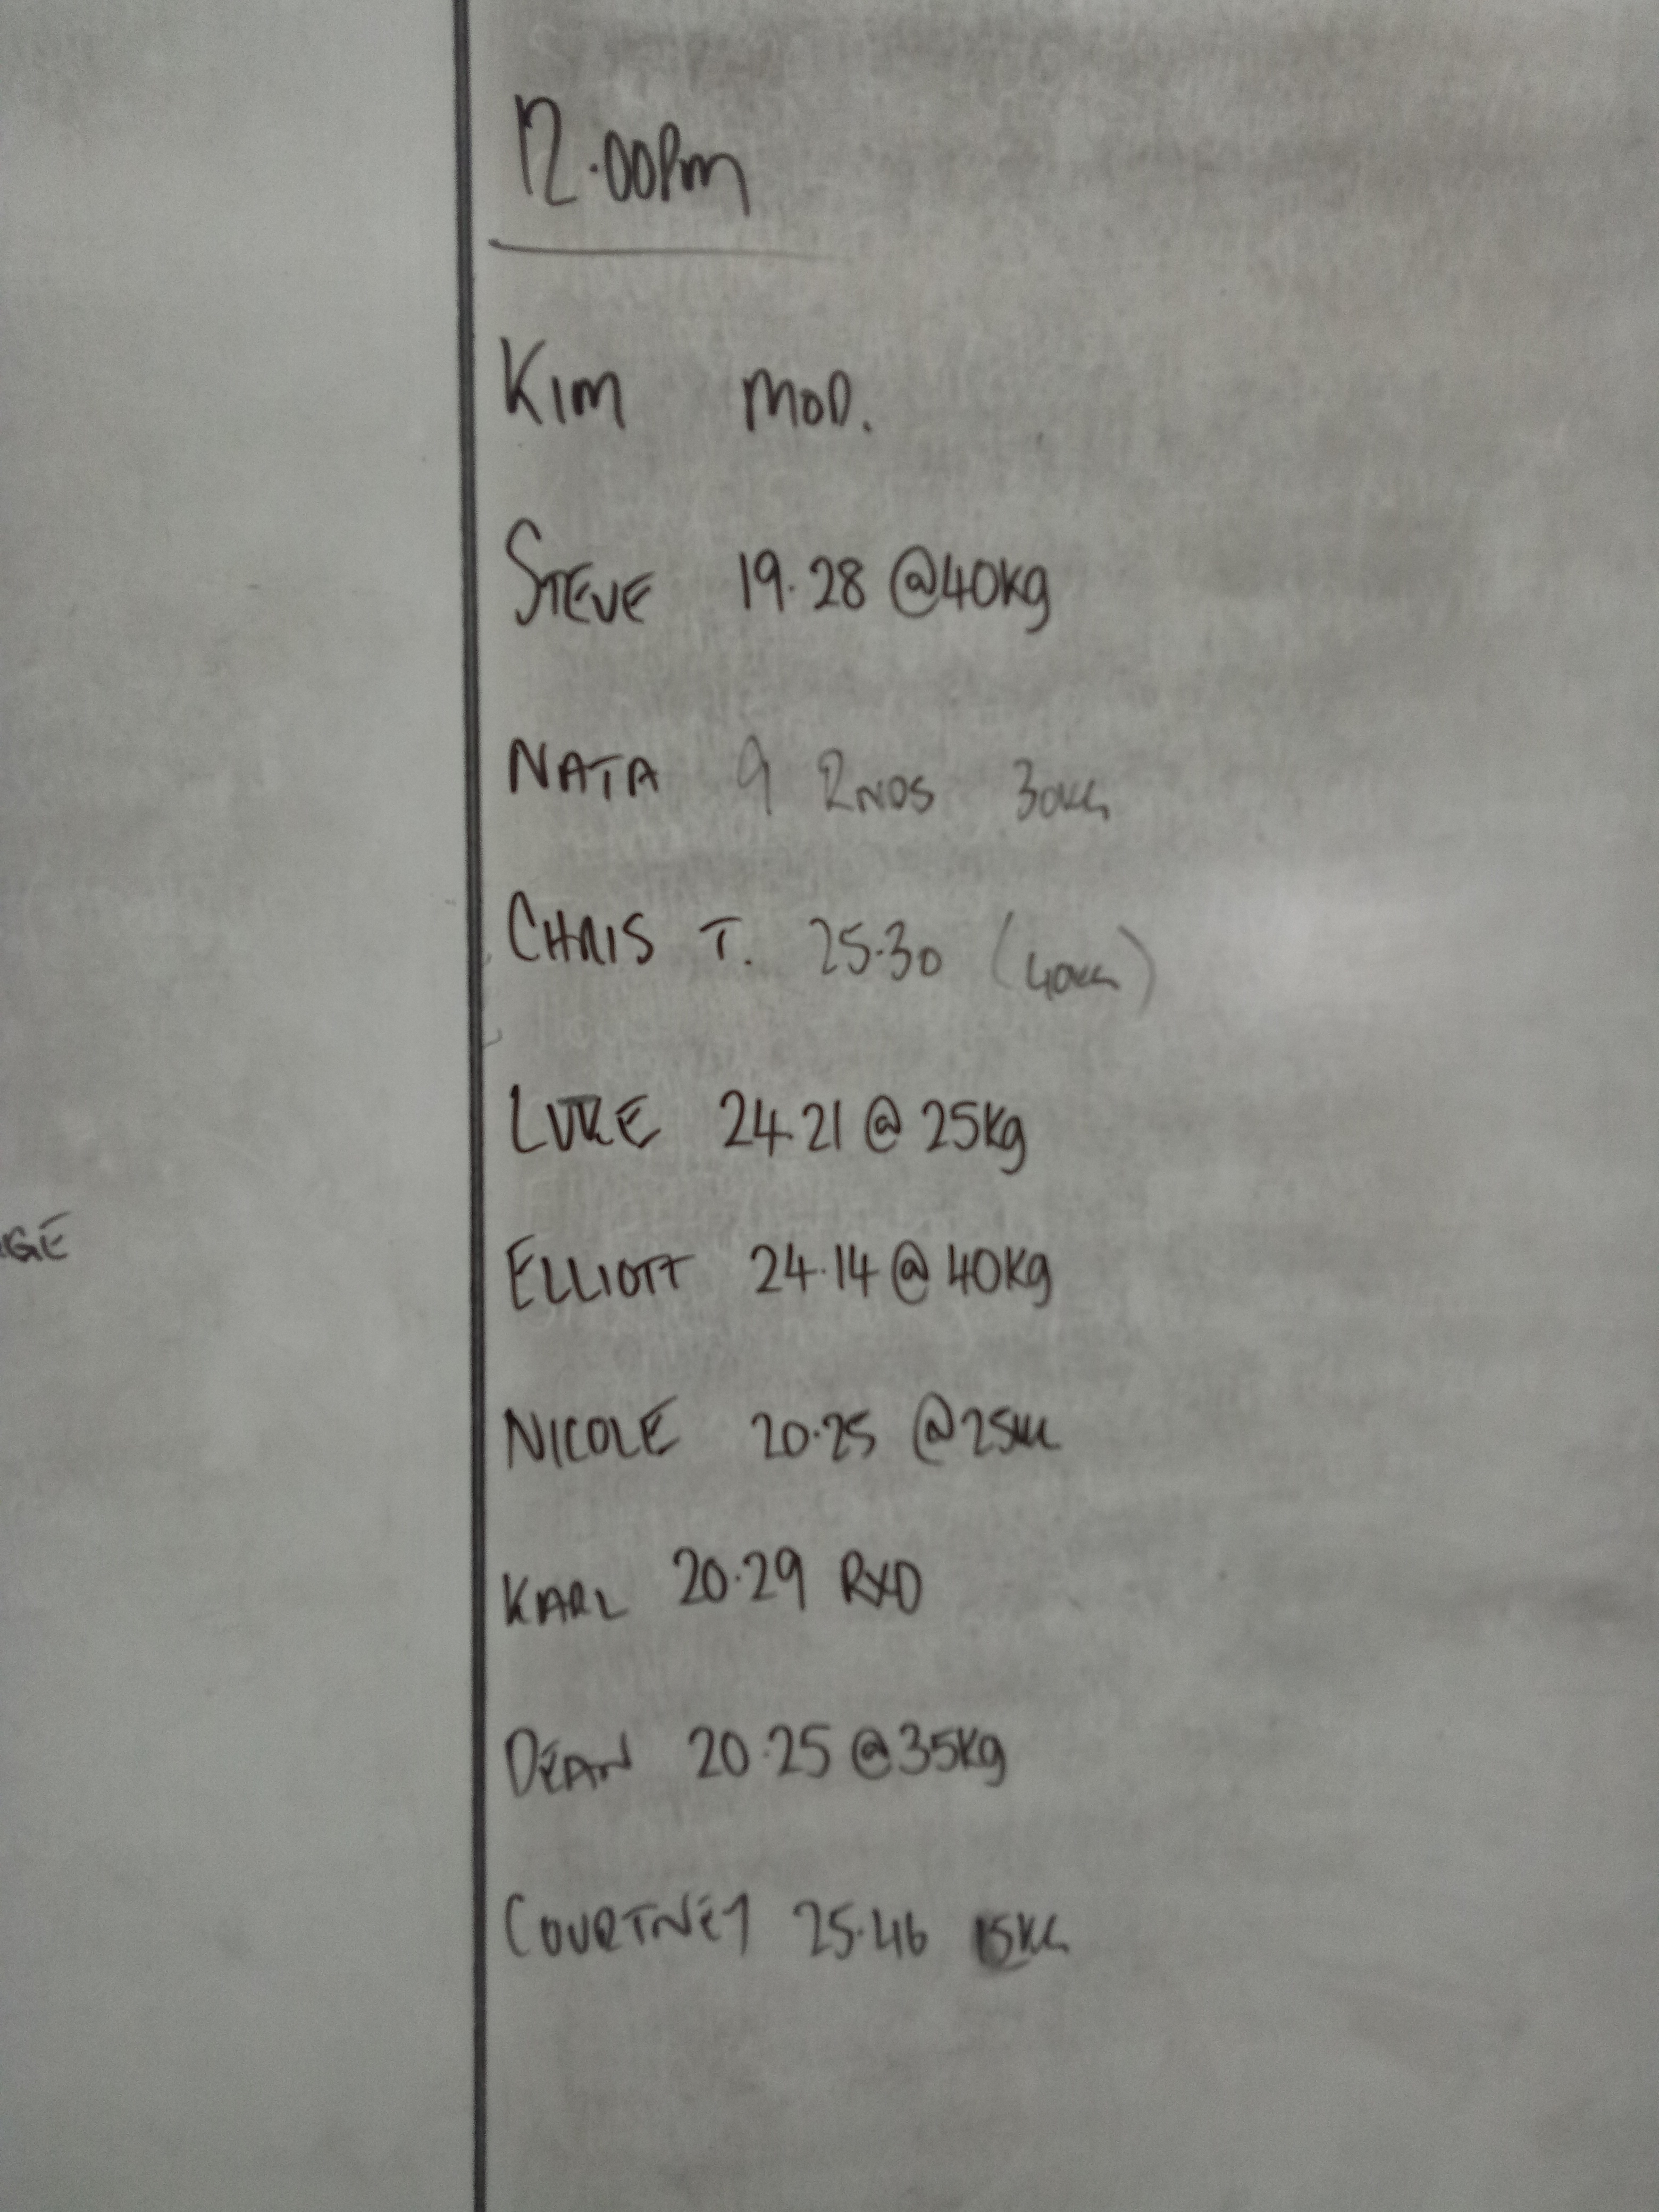 12.00Pm
KIM MOD.
STEVE 19.28 @40kg
NATA 9 RNDS 30KG
CHRIS T. 25.30 (40KG)
LUKE 24.21 @ 25Kg
GE
ELLIOTT 24.14 @ 40Kg
NICOLE 20.25 @25KG
KARL 20.29 RXD
DEAN 20.25 @35Kg
COURTNEY 25.46 15KG